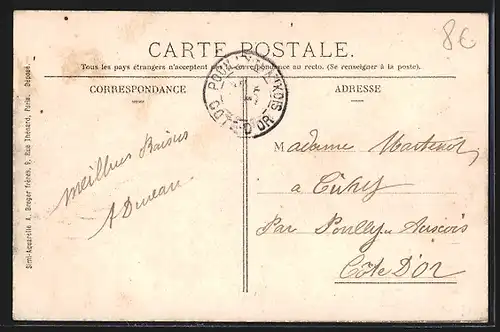 8€
CARTE POSTALE.
Tous les pays étrangers n'acceptent pas la correspondance au recto. (Se renseigner à la poste).
CORRESPONDANCE
ADRESSE
POUILLY-EN-AUXOIS
COTE-D'OR
Meilleurs Baisers
Madame
à Civry
Par Pouilly en Auxois
Côte D'Or
Simi-Aquarelle A. Breger frères, 9, Rue Thénard, Paris. Déposé.